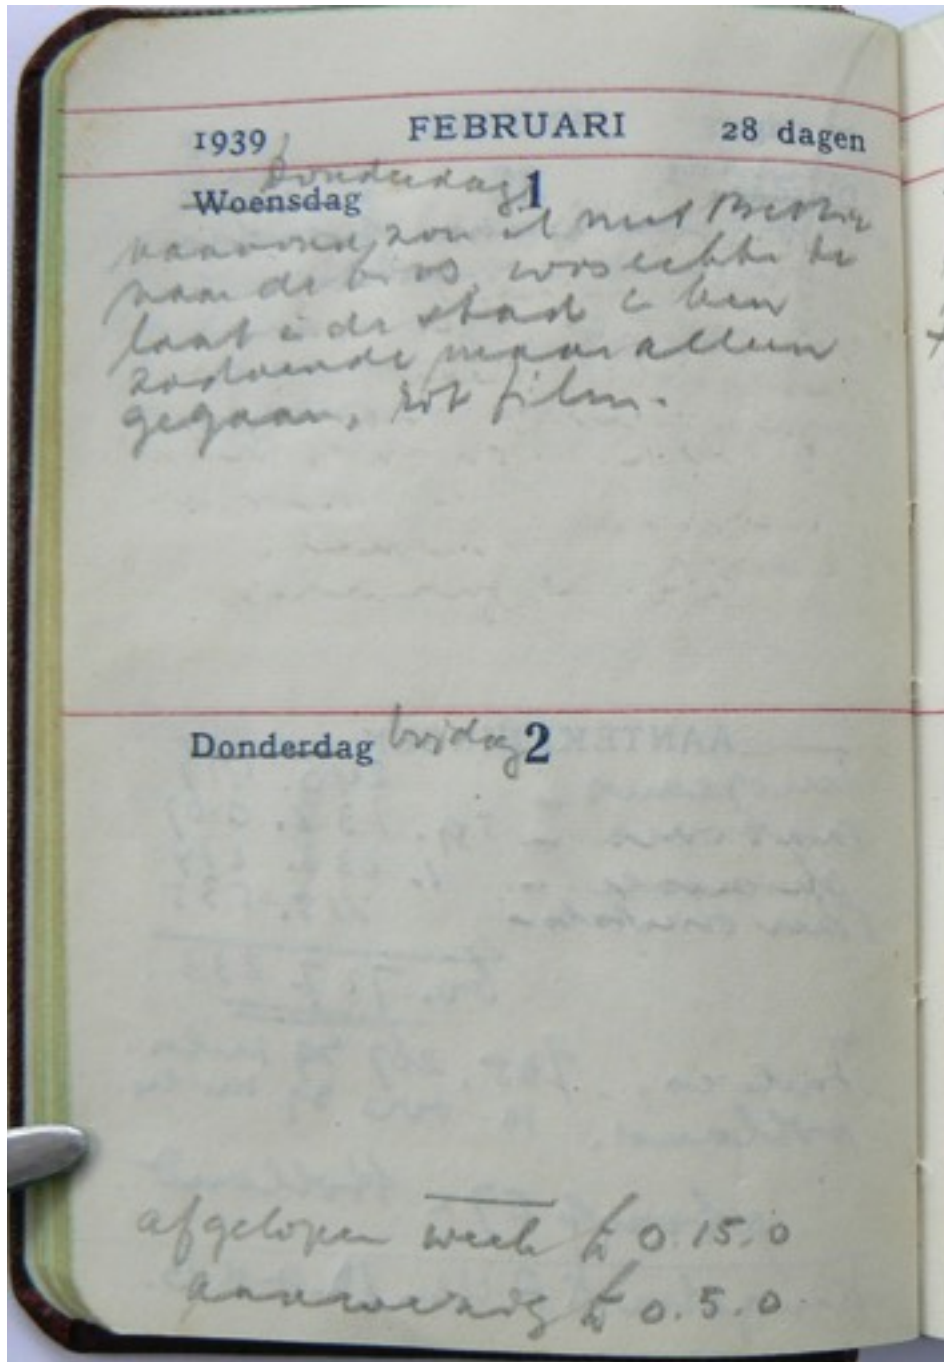 1939 FEBRUARI 28 dagen
Donderdag
Woensdag 1
vanavond zou ik met
naar de bios, was echter te
laat i de stad & ben
zodoende maar alleen
gegaan, rot film.
Donderdag vrijdag 2
afgelopen week £ 0.15.0
aanwezig £ 0.5.0